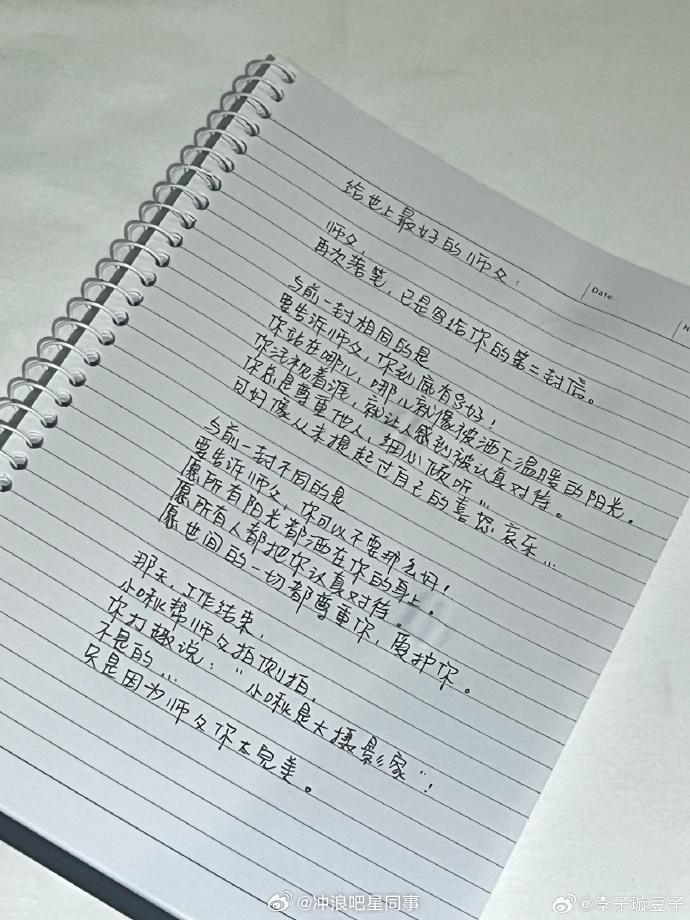 给世上最好的师父：
Date.
N
师父，
再次落笔，已是写给你的第二封信。
与前一封相同的是
要告诉师父，你到底有多好！
你站在哪儿，哪儿就像被洒下温暖的阳光。
你注视着谁，就让人感到被认真对待。
你总是尊重他人，细心倾听…
可好像从未提起过自己的喜怒哀乐…
与前一封不同的是
要告诉师父，你可以不要那么好！
愿所有阳光都洒在你的身上。
愿所有人都把你认真对待。
愿世间的一切都尊重你，爱护你。
那天，工作结束，
小啾帮师父拍侧拍，
你打趣说：“小啾是大摄影家”！
不是的…
只是因为师父你太完美。
@冲浪吧星同事
@李子璇豆子